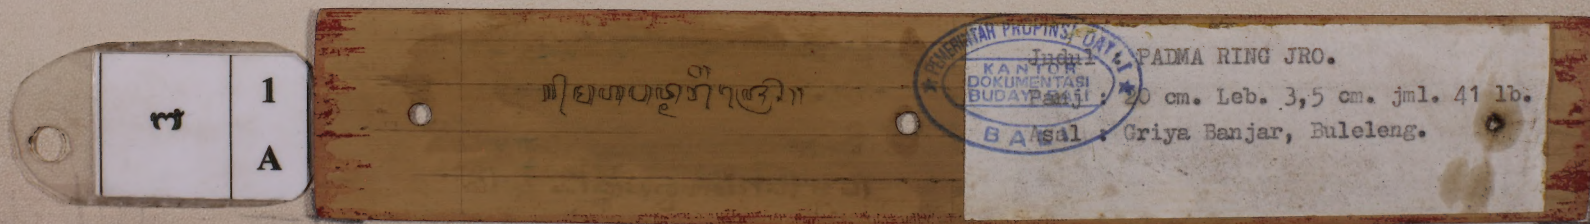 1
A
PEMERINTAH PROPINSI DAY I
KANTOR
DOKUMENTASI
BUDAYA BALI
BALI
Judul PADMA RING JRO.
Panj : 20 cm. Leb. 3,5 cm. jml. 41 lb.
Asal : Griya Banjar, Buleleng.